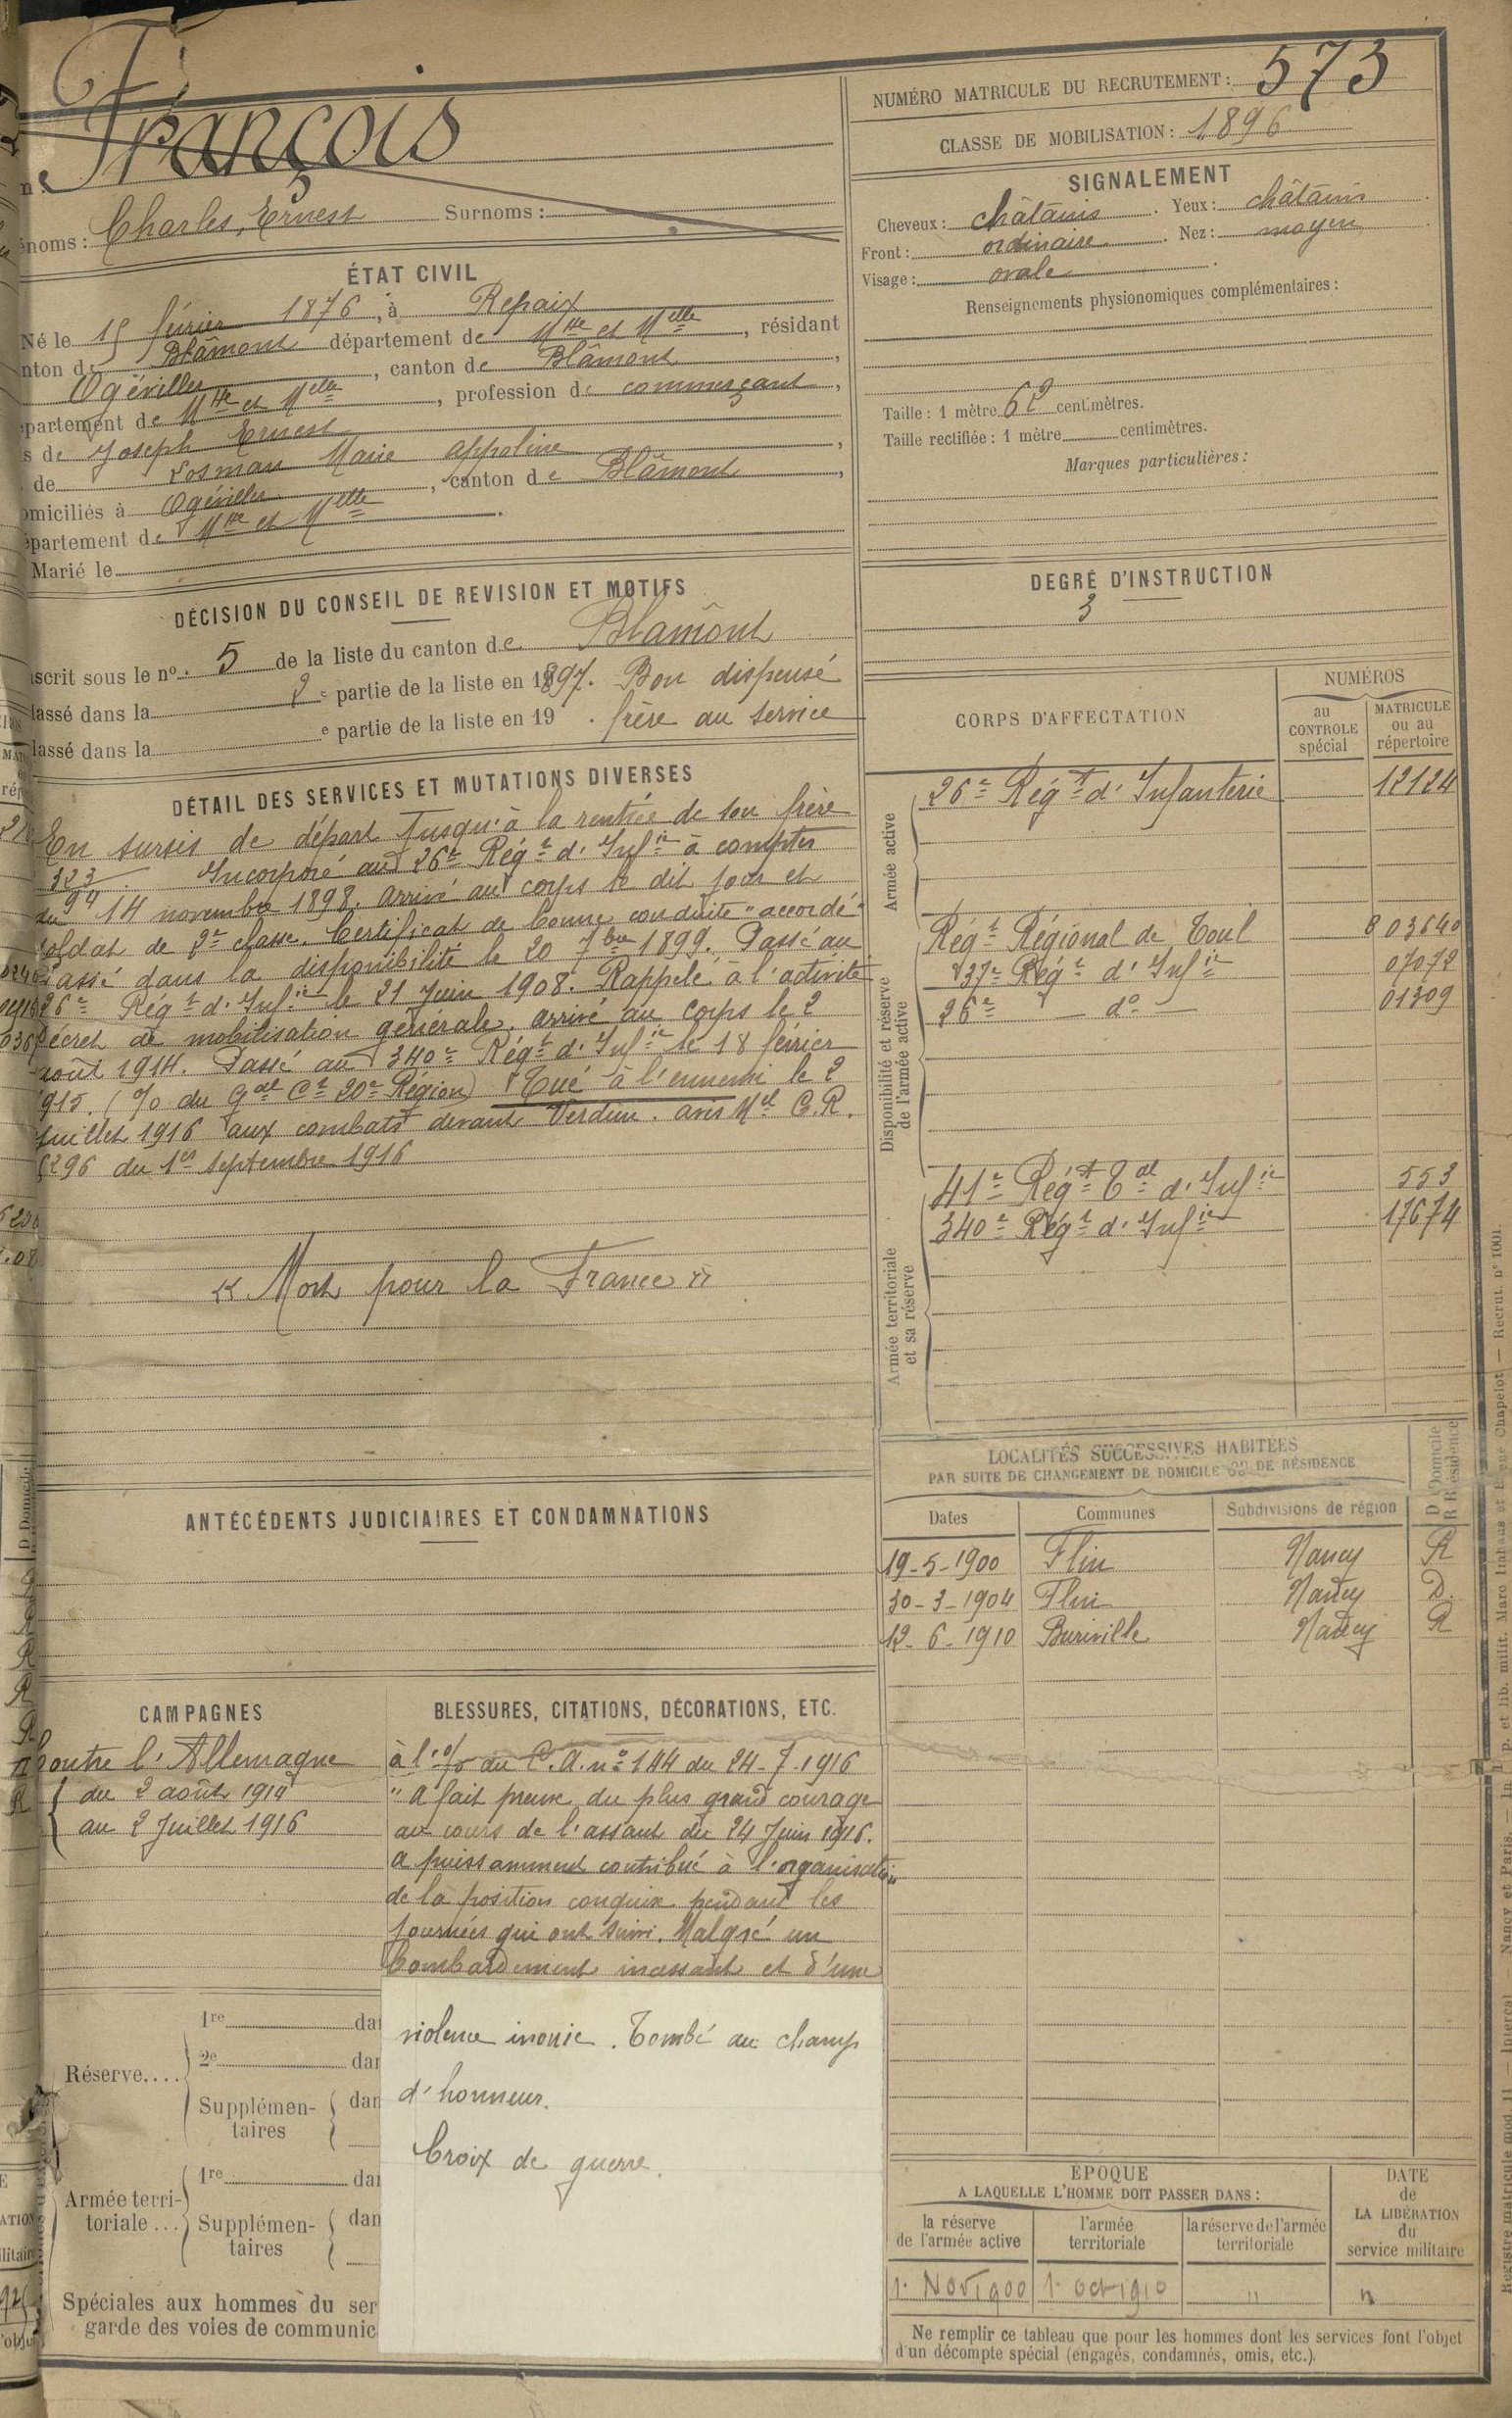 François
NUMÉRO MATRICULE DU RECRUTEMENT : 573
CLASSE DE MOBILISATION : 1896
énoms : Charles, Ernest Surnoms :
ÉTAT CIVIL
Né le 15 février 1876, à Repaix
nton de Blâmont département de Mthe et Melle, résidant
Ogéviller, canton de Blâmont,
partement de Mthe et Melle, profession de commerçant,
s de Joseph Ernest
de Losman Marie Appoline,
omiciliés à Ogéviller, canton de Blâmont,
partement de Mthe et Melle.
Marié le
SIGNALEMENT
Cheveux : châtains. Yeux : châtains.
Front : ordinaire. Nez : moyen.
Visage : ovale.
Renseignements physionomiques complémentaires :
Taille : 1 mètre 62 centimètres.
Taille rectifiée : 1 mètre centimètres.
Marques particulières :
DÉCISION DU CONSEIL DE REVISION ET MOTIFS
scrit sous le no. 5 de la liste du canton de Blâmont
lassé dans la 2e partie de la liste en 1897. Bon dispensé
lassé dans la e partie de la liste en 19 . frère au service
DEGRÉ D'INSTRUCTION
3
DÉTAIL DES SERVICES ET MUTATIONS DIVERSES
En sursis de départ jusqu'à la rentrée de son frère
323/94. Incorporé au 26e Régt d'Infie à compter
du 14 novembre 1898. arrivé au corps le dit jour et
soldat de 2e classe. Certificat de bonne conduite "accordé"
Passé dans la disponibilité le 20 7bre 1899. Passé au
26e Régt d'Infie le 21 Juin 1908. Rappelé à l'activité
Décret de mobilisation générale. arrivé au corps le 2
août 1914. Passé au 340e Régt d'Infie le 18 février
1915. (% du Gal Ct 20e Région) Tué à l'ennemi le 2
Juillet 1916 aux combats devant Verdun. avis Mel C.R.
6296 du 1er septembre 1916
« Mort pour la France »
CORPS D'AFFECTATION
NUMÉROS
au CONTROLE spécial
MATRICULE ou au répertoire
Armée active
26e Régt d'Infanterie 12124
Disponibilité et réserve de l'armée active
Régt Régional de Toul 03640
37e Régt d'Infie 07072
26e — do — 01309
Armée territoriale et sa réserve
41e Régt Tal d'Infie 553
340e Régt d'Infie 17674
ANTÉCÉDENTS JUDICIAIRES ET CONDAMNATIONS
LOCALITÉS SUCCESSIVES HABITÉES
PAR SUITE DE CHANGEMENT DE DOMICILE OU DE RÉSIDENCE
D Domicile
R Résidence
Dates Communes Subdivisions de région
19-5-1900 Flin Nancy R
30-3-1904 Flin Nancy D.
12-6-1910 Buriville Nancy R
CAMPAGNES
Contre l'Allemagne
du 2 août 1914
au 2 Juillet 1916
BLESSURES, CITATIONS, DÉCORATIONS, ETC.
à l'% du C.A. no 144 du 24-7-1916
"a fait preuve du plus grand courage
au cours de l'assaut du 24 Juin 1916.
a puissamment contribué à l'organisation
de la position conquise pendant les
journées qui ont suivi. Malgré un
bombardement incessant et d'une
violence inouïe. Tombé au champ
d'honneur.
Croix de guerre.
Réserve....
1re dan
2e dan
Supplémen-taires dan
Armée terri-toriale...
1re dan
Supplémen-taires dan
Spéciales aux hommes du ser
garde des voies de communic
EPOQUE
A LAQUELLE L'HOMME DOIT PASSER DANS :
la réserve de l'armée active
l'armée territoriale
la réserve de l'armée territoriale
DATE de LA LIBÉRATION du service militaire
1. Nov 1900 1. oct 1910 " "
Ne remplir ce tableau que pour les hommes dont les services font l'objet
d'un décompte spécial (engagés, condamnés, omis, etc.).